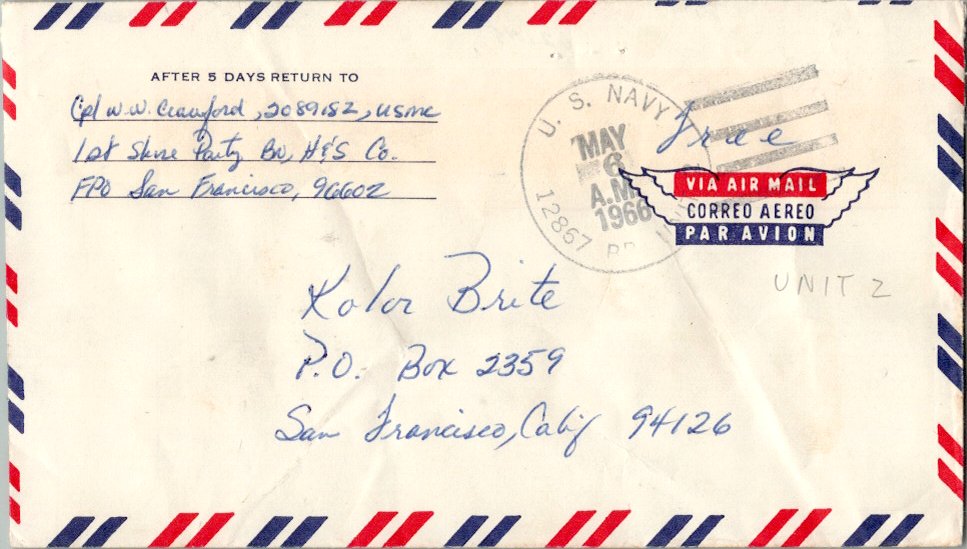 AFTER 5 DAYS RETURN TO
Cpl W.W. Crawford, 2089152, USMC
1st Shore Party Bn, H&S Co.
FPO San Francisco, 96602
U.S. NAVY
MAY
6
A.M.
1966
12867
Free
VIA AIR MAIL
CORREO AEREO
PAR AVION
UNIT 2
Kolor Brite
P.O. Box 2359
San Francisco, Calif 94126